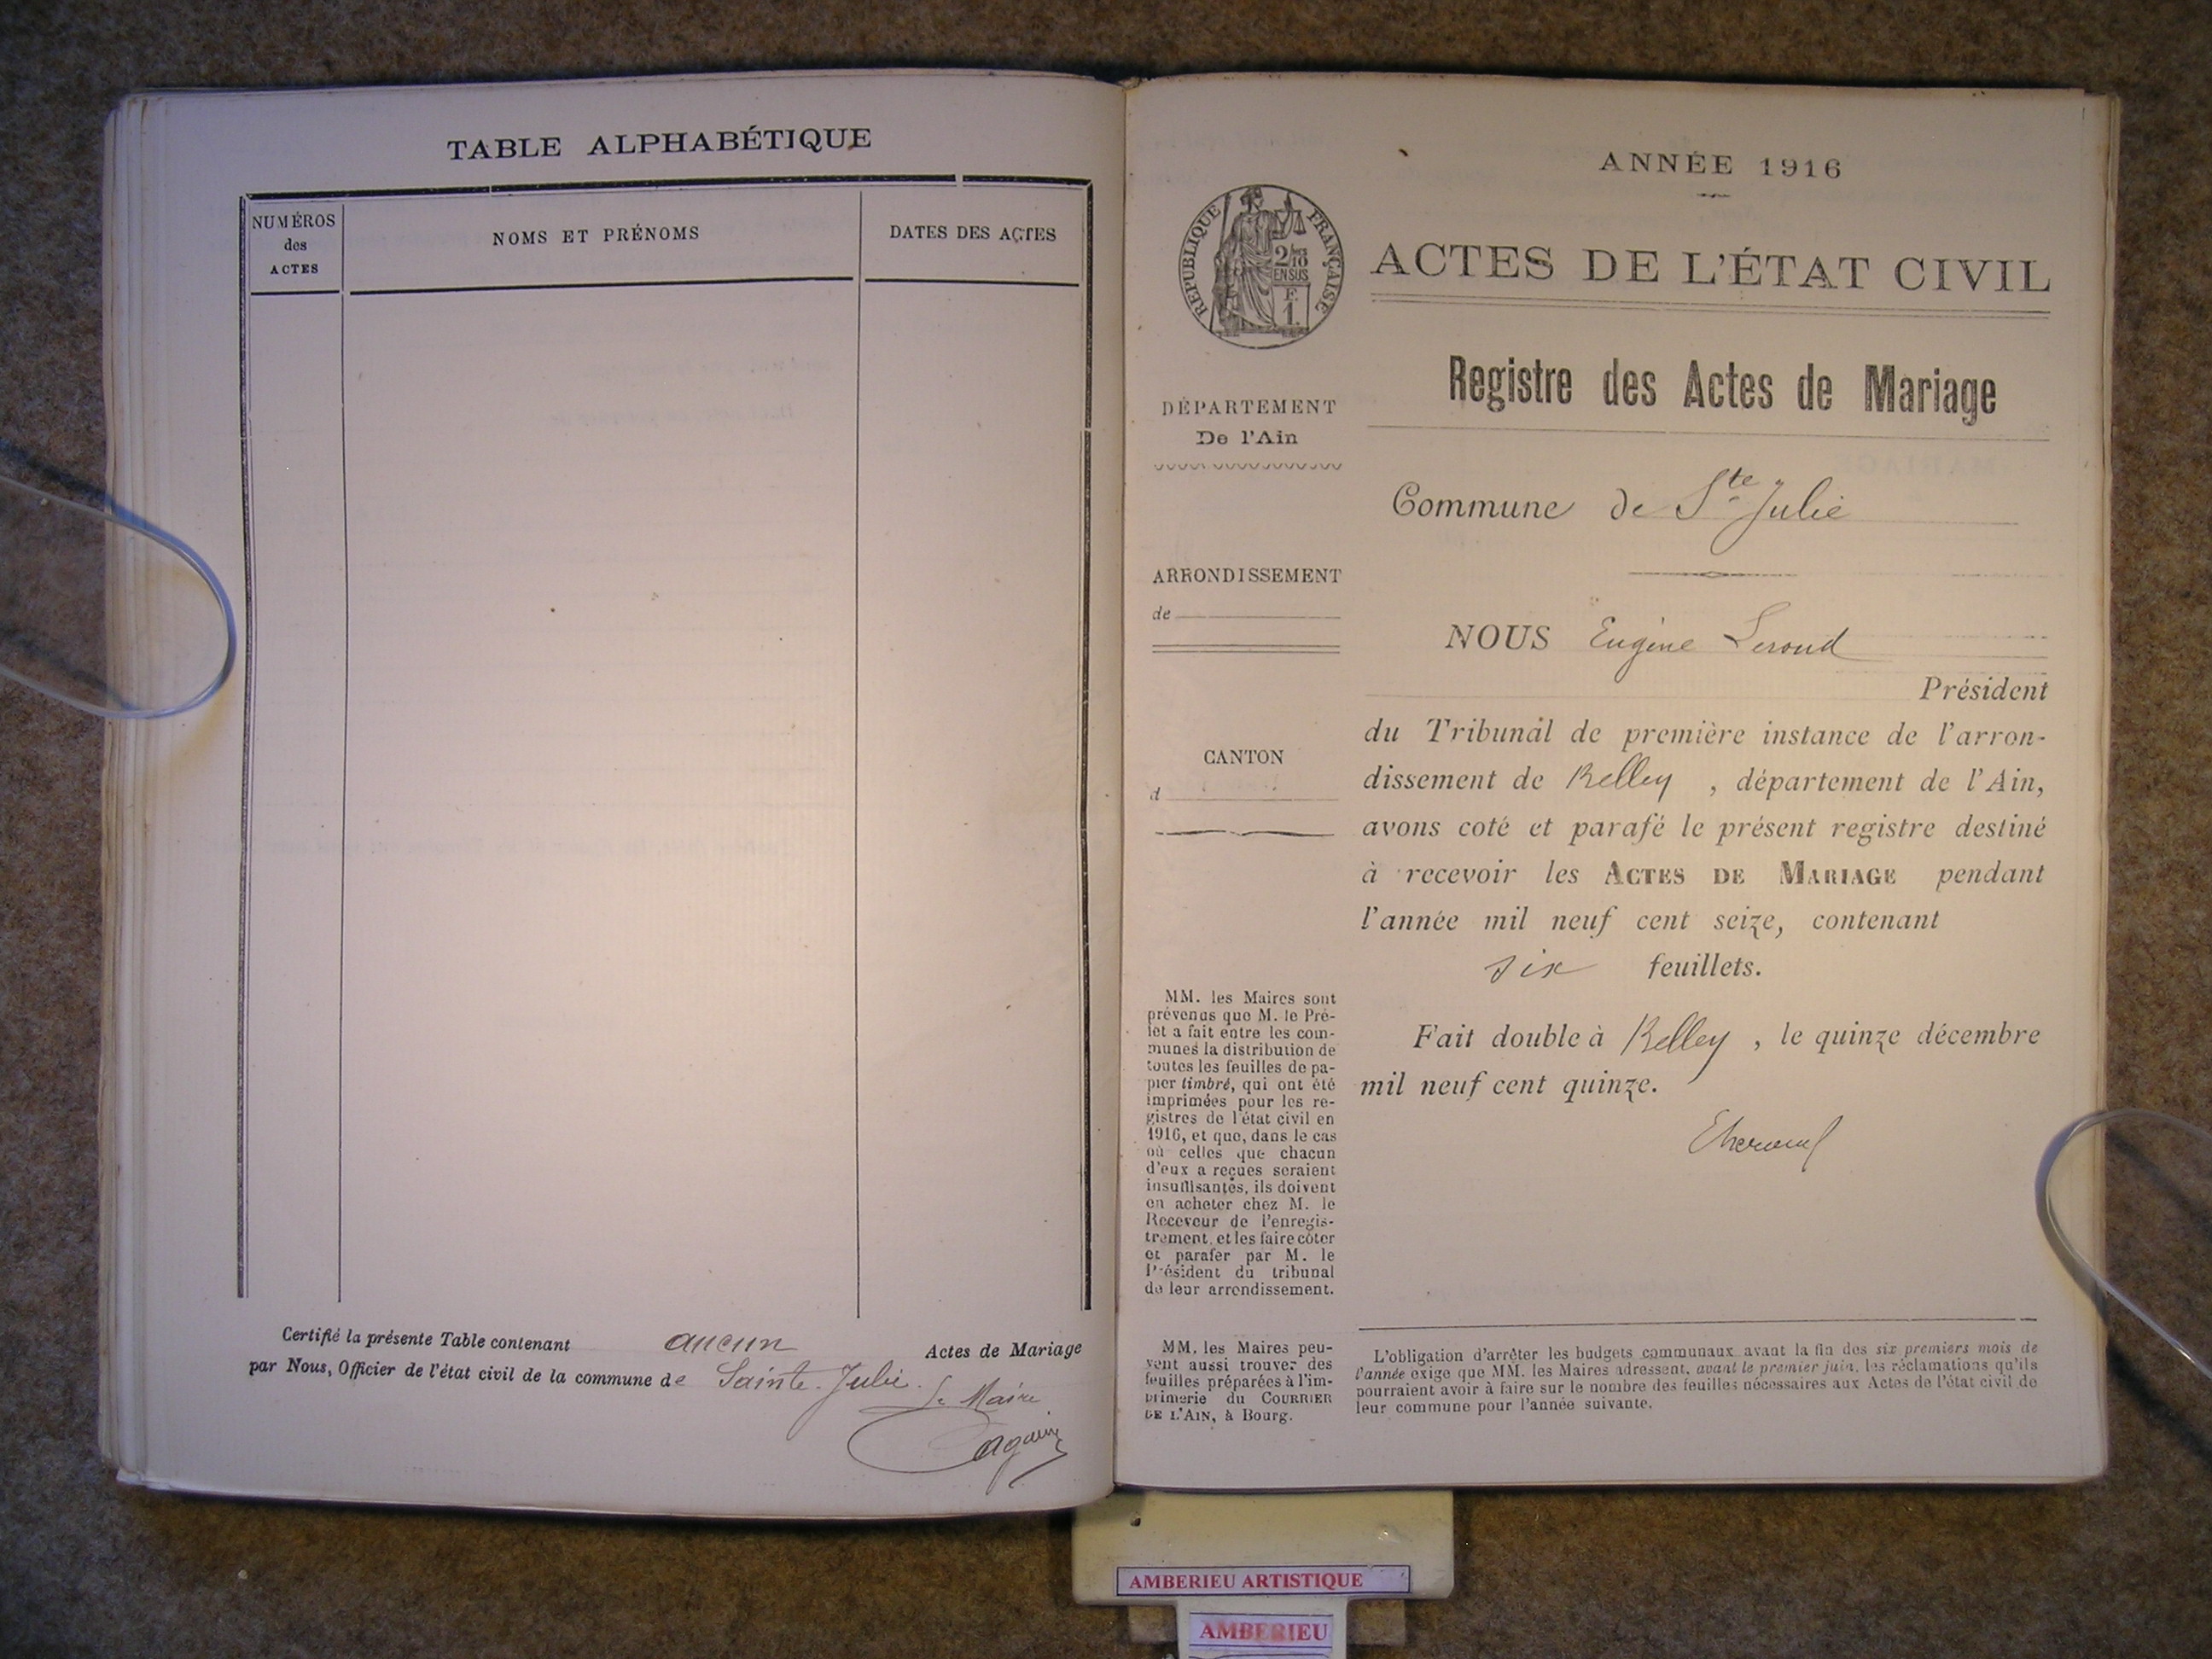 TABLE ALPHABÉTIQUE
NUMÉROS
des
ACTES
NOMS ET PRÉNOMS
DATES DES ACTES
Certifié la présente Table contenant aucun Actes de Mariage
par Nous, Officier de l'état civil de la commune de Sainte-Julie.
Le Maire
ANNÉE 1916
RÉPUBLIQUE FRANÇAISE
2/10
EN SUS
F.
1.
ACTES DE L'ÉTAT CIVIL
Registre des Actes de Mariage
DÉPARTEMENT
De l'Ain
Commune de Ste Julie
ARRONDISSEMENT
de
NOUS Eugène
Président
du Tribunal de première instance de l'arron-
dissement de Belley, département de l'Ain,
avons coté et parafé le présent registre destiné
à recevoir les ACTES DE MARIAGE pendant
l'année mil neuf cent seize, contenant
six feuillets.
Fait double à Belley, le quinze décembre
mil neuf cent quinze.
CANTON
d
MM. les Maires sont
prévenus que M. le Pré-
fet a fait entre les com-
munes la distribution de
toutes les feuilles de pa-
pier timbré, qui ont été
imprimées pour les re-
gistres de l'état civil en
1916, et que, dans le cas
où celles que chacun
d'eux a reçues seraient
insuffisantes, ils doivent
en acheter chez M. le
Receveur de l'enregis-
trement, et les faire côter
et parafer par M. le
Président du tribunal
de leur arrondissement.
MM. les Maires peu-
vent aussi trouver des
feuilles préparées à l'im-
primerie du COURRIER
DE L'AIN, à Bourg.
L'obligation d'arrêter les budgets communaux avant la fin des six premiers mois de
l'année exige que MM. les Maires adressent, avant le premier juin, les réclamations qu'ils
pourraient avoir à faire sur le nombre des feuilles nécessaires aux Actes de l'état civil de
leur commune pour l'année suivante.
AMBERIEU ARTISTIQUE
AMBERIEU